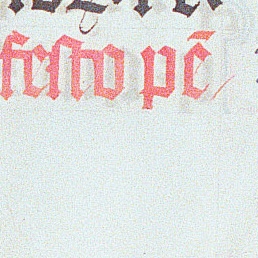 festo pē